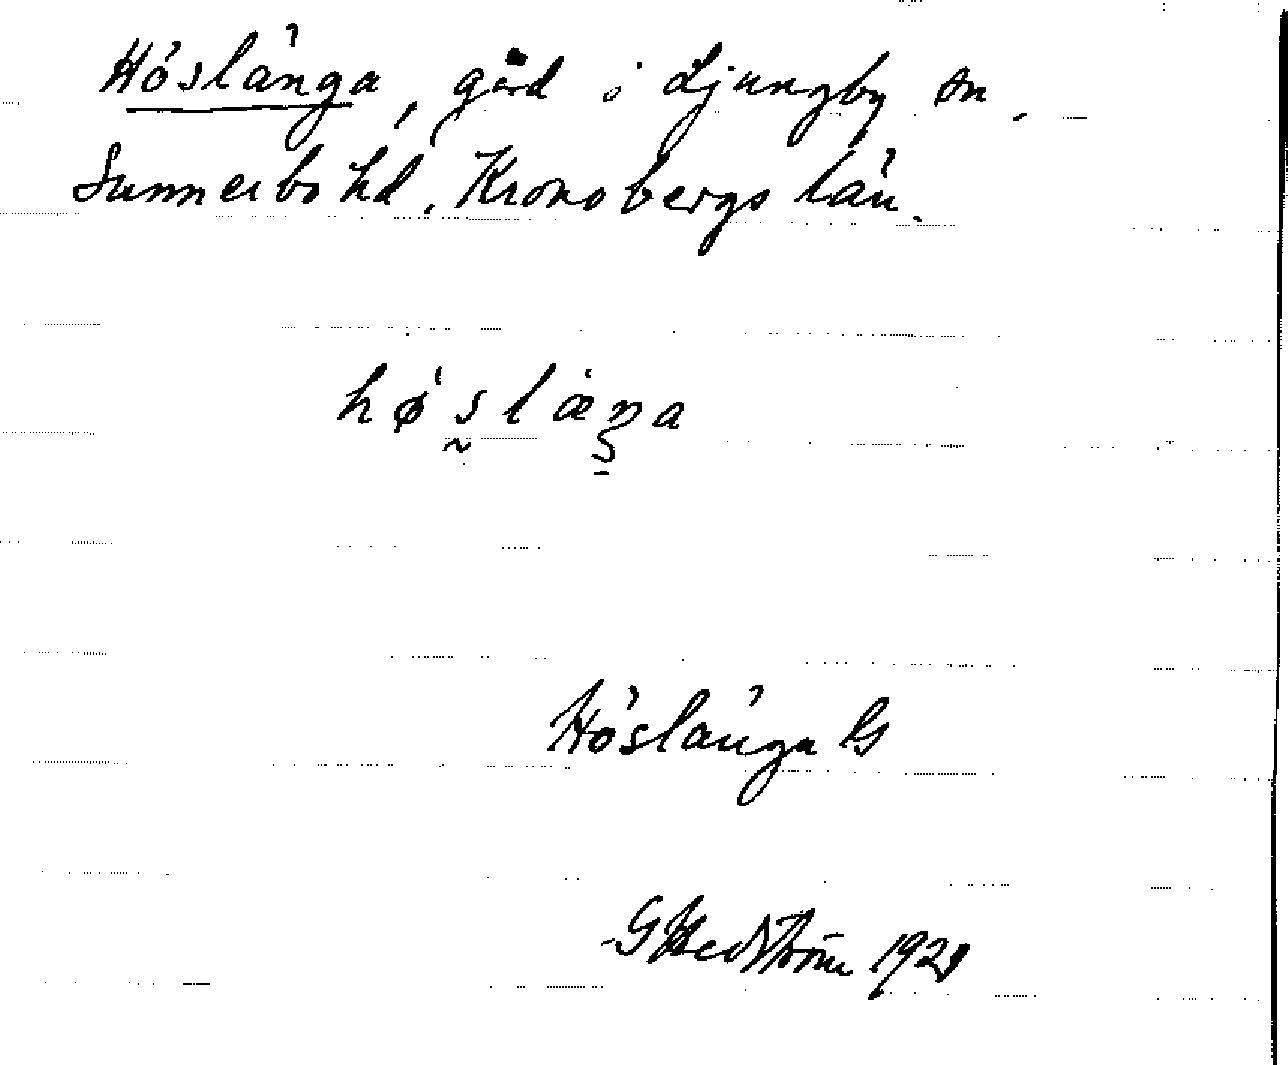 Höslänga, gård i Ljungby sn,
Sunnerbo hd, Kronobergs län.
hø̀s̰læŋa
Höslänga G
G Hedström 1921